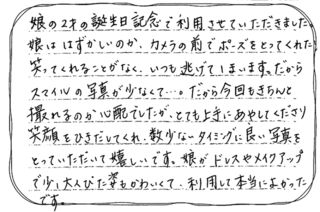 娘の2才の誕生日記念で利用させていただきました。
娘ははずかしいのか、カメラの前でポーズをとってくれたり
笑ってくれることがなく、いつも逃げてしまいます。だから
スマイルの写真が少なくて…。だから今回もきちんと
撮れるのか心配でしたが、とても上手にあやしてくださり
笑顔をひきだしてくれ、数少ないタイミングに良い写真を
とっていただいて嬉しいです。娘がドレスやメイクアップ
で少し大人びた姿もかわいくて、利用して本当によかった
です。